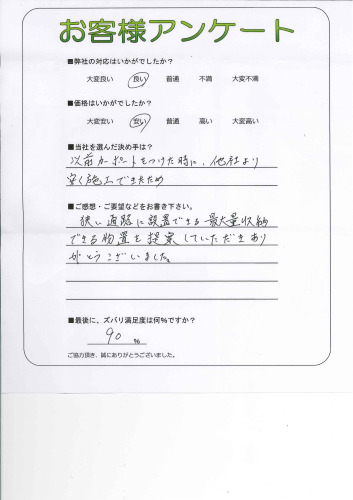 お客様アンケート
■弊社の対応はいかがでしたか?
大変良い 良い 普通 不満 大変不満
■価格はいかがでしたか?
大変安い 安い 普通 高い 大変高い
■当社を選んだ決め手は?
以前カーポートをつけた時に、他社より
安く施工できたため
■ご感想・ご要望などをお書き下さい。
狭い通路に設置できる最大量収納
できる物置を提案していただきあり
がとうございました。
■最後に、ズバリ満足度は何%ですか?
90 %
ご協力頂き、誠にありがとうございました。